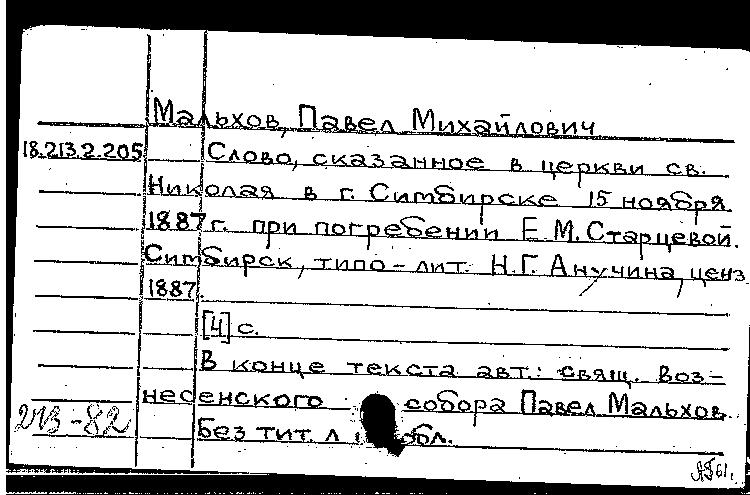 Мальхов, Павел Михайлович
18.213.2.205 Слово, сказанное в церкви св.
Николая в г. Симбирске 15 ноября
1887 г. при погребении Е.М. Старцевой.
Симбирск, типо-лит. Н.Г. Анучина, ценз.
1887.
[4] с.
В конце текста авт.: свящ. Воз-
несенского собора Павел Мальхов.
213-82
Без тит. л. обл.